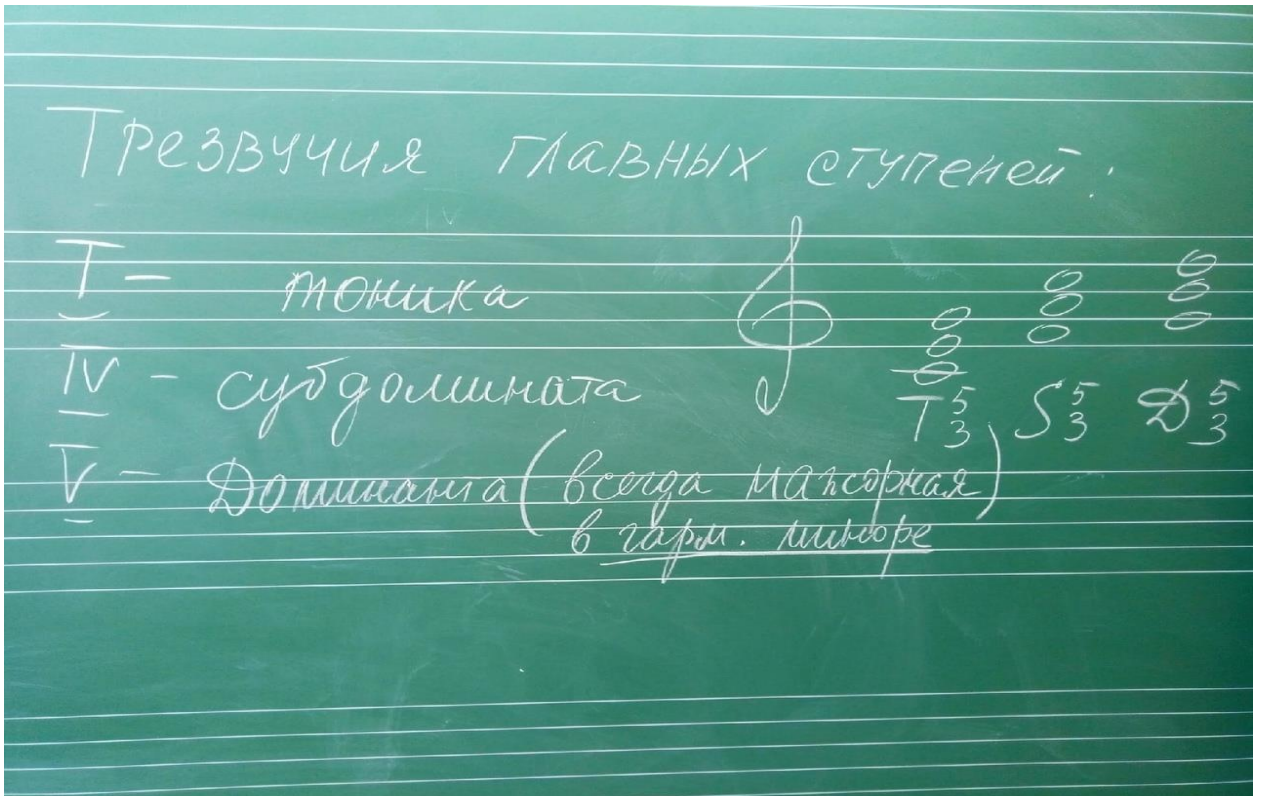 Трезвучия главных ступеней:
I – тоника
IV – субдомината
V – Доминанта (всегда мажорная)
в гарм. миноре
T 5 3 S 5 3 D 5 3